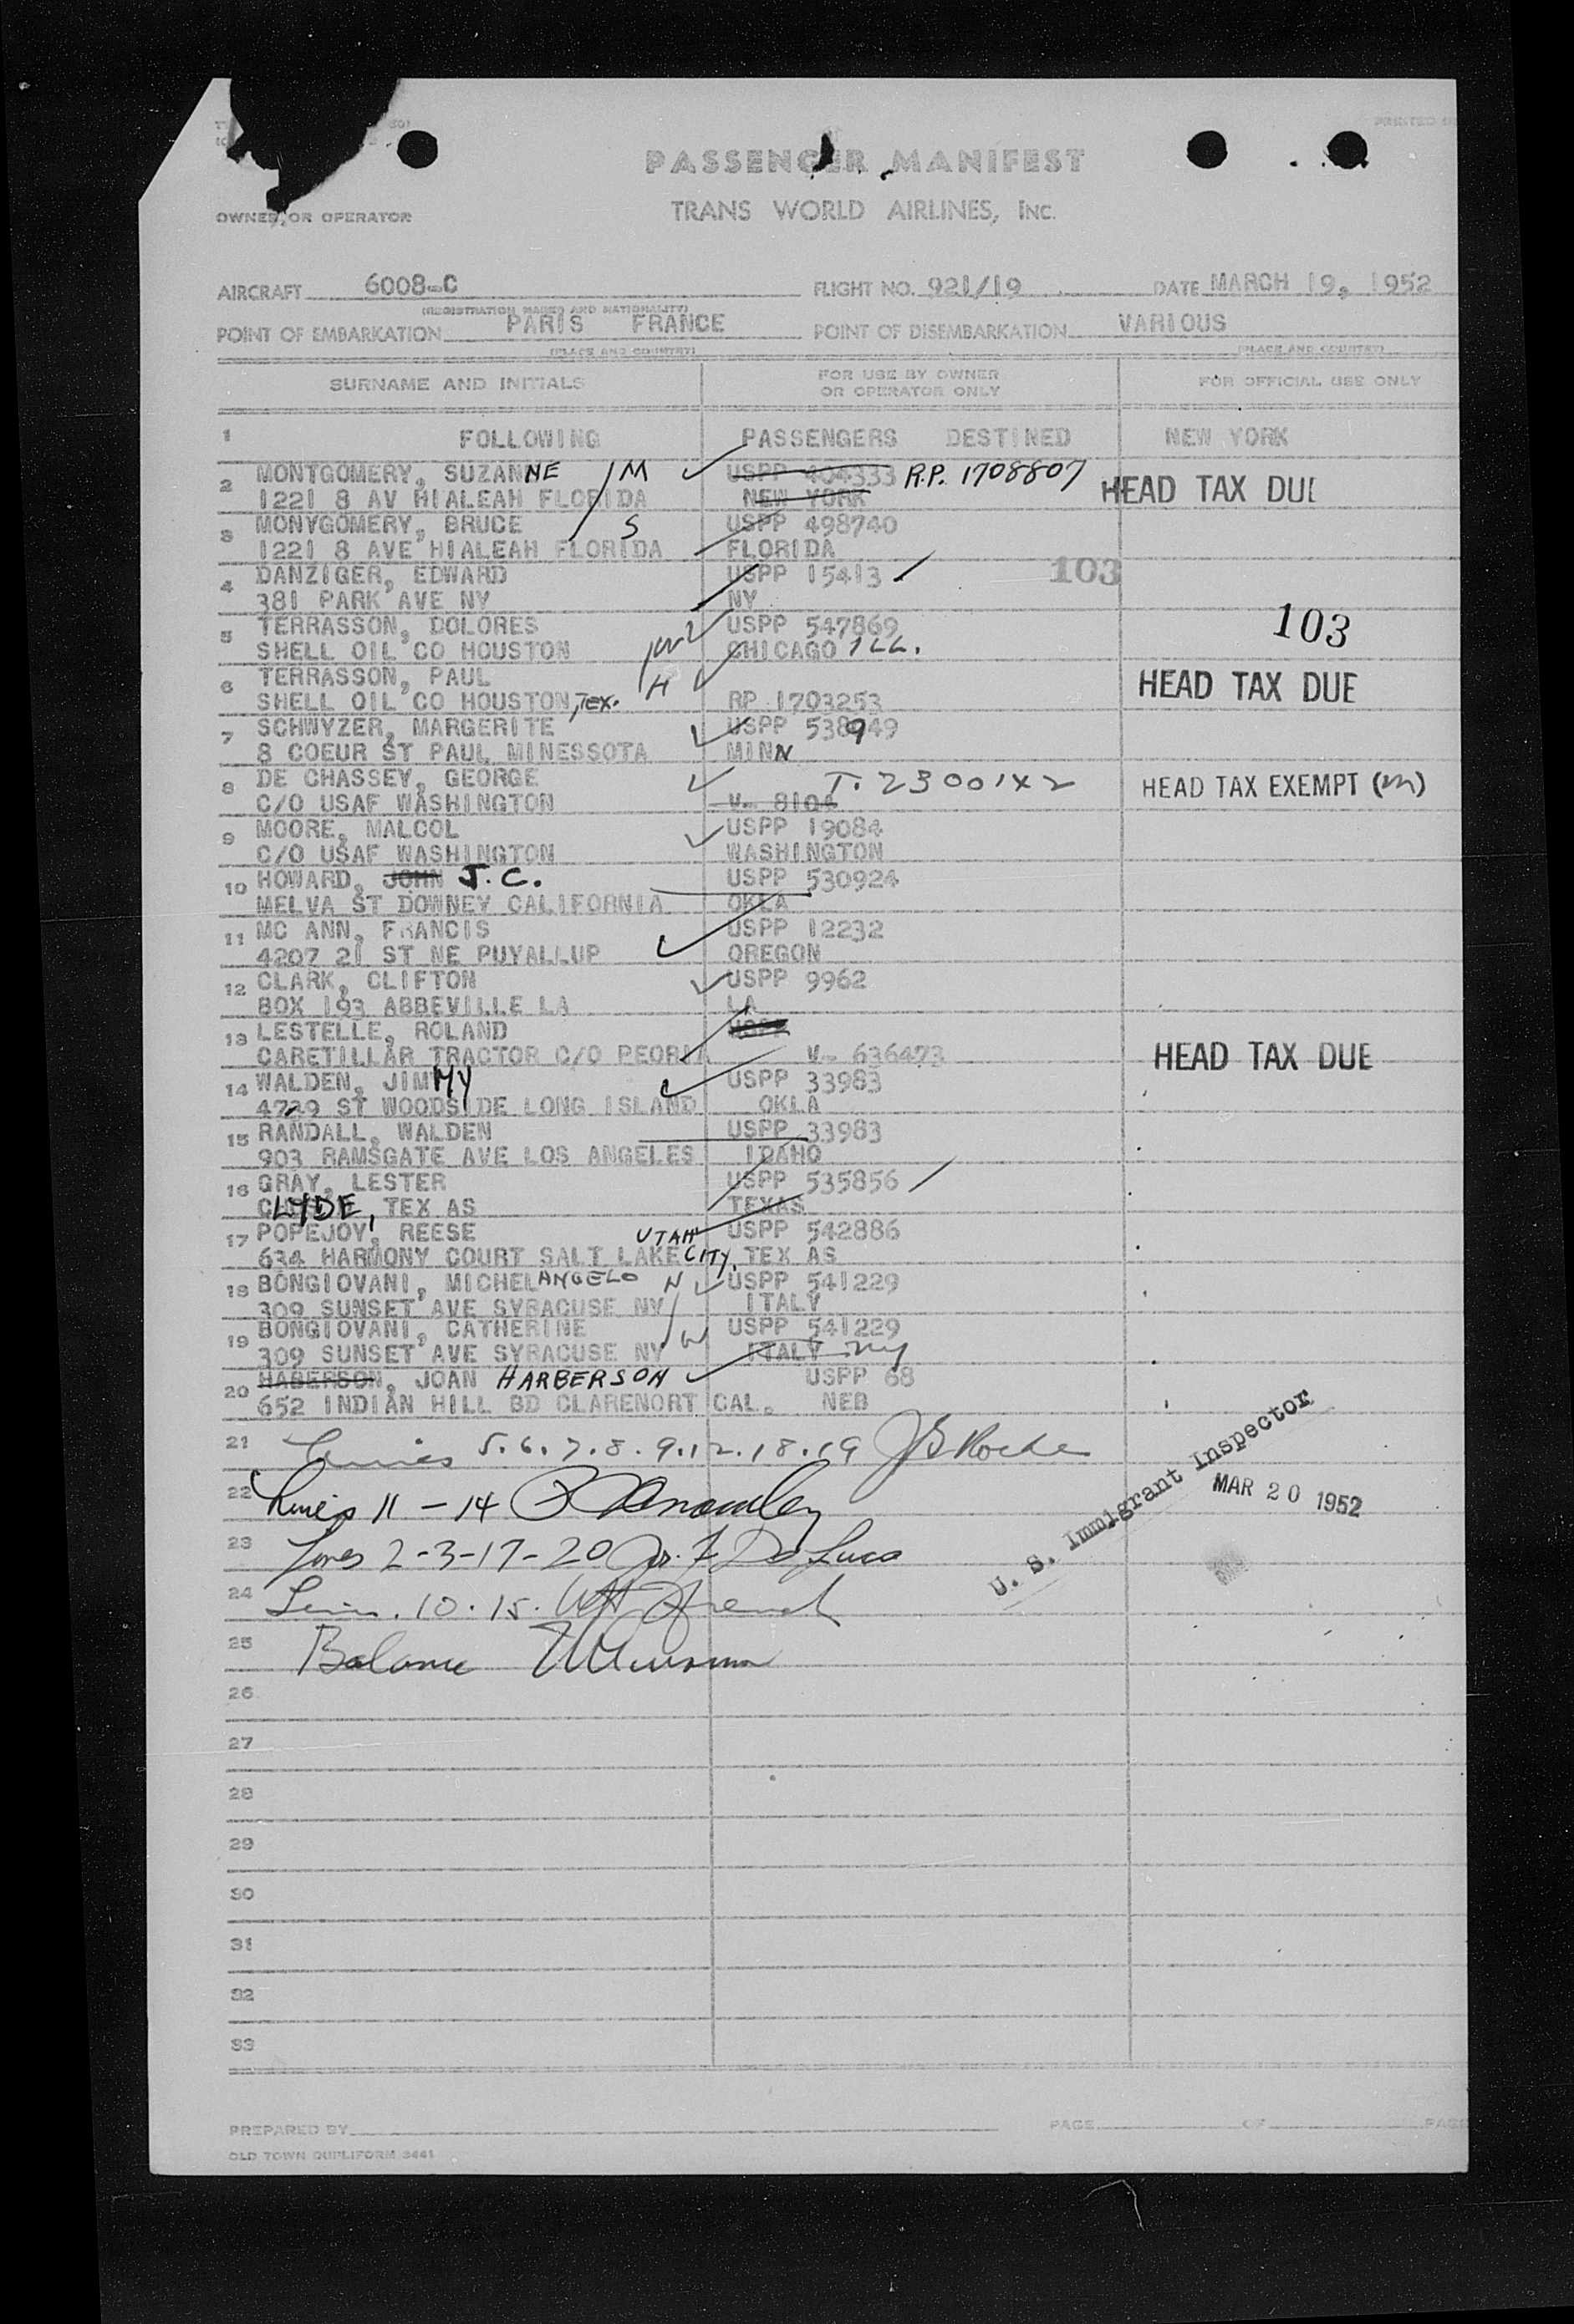 PRINTED IN
PASSENGER MANIFEST
OWNER OR OPERATOR
TRANS WORLD AIRLINES, INC.
AIRCRAFT 6008-C FLIGHT NO. 921/19 DATE MARCH 19, 1952
(REGISTRATION MARKS AND NATIONALITY)
POINT OF EMBARKATION PARIS FRANCE POINT OF DISEMBARKATION VARIOUS
(PLACE AND COUNTRY) (PLACE AND COUNTRY)
SURNAME AND INITIALS FOR USE BY OWNER OR OPERATOR ONLY FOR OFFICIAL USE ONLY
1 FOLLOWING PASSENGERS DESTINED NEW YORK
2 MONTGOMERY, SUZANNE M USPP 404333 R.P. 1708807 HEAD TAX DUE
1221 8 AV HIALEAH FLORIDA NEW YORK
3 MONYGOMERY, BRUCE S USPP 498740
1221 8 AVE HIALEAH FLORIDA FLORIDA
4 DANZIGER, EDWARD USPP 15413 103
381 PARK AVE NY NY
5 TERRASSON, DOLORES W USPP 547869 103
SHELL OIL CO HOUSTON CHICAGO ILL.
6 TERRASSON, PAUL H HEAD TAX DUE
SHELL OIL CO HOUSTON, Tex. RP 1703253
7 SCHWYZER, MARGERITE USPP 538949
8 COEUR ST PAUL MINESSOTA MINN
8 DE CHASSEY, GEORGE T. 2300142 HEAD TAX EXEMPT (m)
C/O USAF WASHINGTON V- 8104
9 MOORE, MALCOL USPP 19084
C/O USAF WASHINGTON WASHINGTON
10 HOWARD, JOHN J.C. USPP 530924
MELVA ST DOWNEY CALIFORNIA OKLA
11 MC ANN, FRANCIS USPP 12232
4207 21 ST NE PUYALLUP OREGON
12 CLARK, CLIFTON USPP 9962
BOX 193 ABBEVILLE LA LA
13 LESTELLE, ROLAND USPP
CARETILLAR TRACTOR C/O PEORIA V- 636473 HEAD TAX DUE
14 WALDEN, JIMMY USPP 33983
4729 ST WOODSIDE LONG ISLAND OKLA
15 RANDALL, WALDEN USPP 33983
903 RAMSGATE AVE LOS ANGELES IDAHO
16 GRAY, LESTER USPP 535856
CLYDE, TEX AS TEXAS
17 POPEJOY, REESE USPP 542886
634 HARMONY COURT SALT LAKE CITY, UTAH TEX AS
18 BONGIOVANI, MICHELANGELO H USPP 541229
309 SUNSET AVE SYRACUSE NY ITALY
19 BONGIOVANI, CATHERINE W USPP 541229
309 SUNSET AVE SYRACUSE NY ITALY NY
20 HABERSON, JOAN HARBERSON USPP 68
652 INDIAN HILL BD CLARENORT CAL. NEB
21 Lines 5.6.7.8.9.12.18.19
22 Lines 11-14
23 Lines 2-3-17-20 Jos. F. De Luca
24 Lines. 10.15. French
25 Balance
U. S. Immigrant Inspector
MAR 20 1952
26
27
28
29
30
31
32
33
PREPARED BY PAGE OF PAGES
OLD TOWN DUPLIFORM 3441